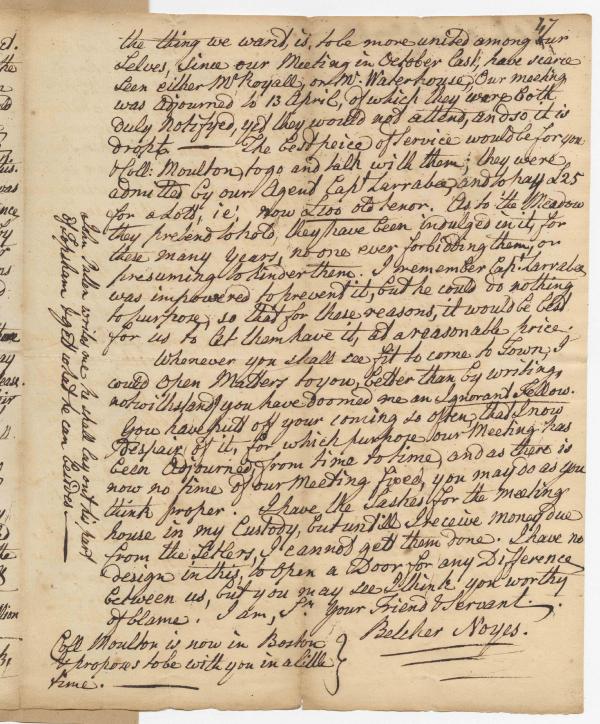 47
the thing we want, is, to be more united among our
selves, Since our Meeting in October last, have scarce
seen either Mr Royall, or Mr. Waterhouse, Our meeting
was adjourned to 13 April, of which they were both
duly Notifyed, yet they would not attend, and so it is
dropt — The best peice of Service would be for you
& Coll: Moulton, to go and talk with them; they were
admitted by our Agent Capt Larrabee, and to pay £25
for a Lott, ie, now £100 old tenor. As to the Meadow
they pretend to hold, they have been indulged in it, for
these many years, no one ever forbidding them, or
presuming to hinder them. I remember Capt. Larrabee
was impowered to prevent it, but he could do nothing
to purpose, so that for these reasons, it would be best
for us to let them have it, at a reasonable price.
Whenever you shall see fit to come to Town, I
could open Matters to you, better than by writing,
notwithstandg you have doomed me an Ignorant Fellow.
You have put off your coming so often, that I now
despair of it, for which purpose our Meeting has
been Adjourned, from time to time, and as there is
now no time of our Meeting fixed, you may do as you
think proper. I have the Sashes for the meeting
house in my Custody, but untill I receive money due
from the Setlers, I cannot get them done. I have no
design in this, to open a Door for any Difference
between us, but you may see I think you worthy
of blame. I am, Sr Your Friend & Servant.
Belcher Noyes.
Coll Moulton is now in Boston
& proposes to be with you in a little
time.
writes me he shall lay out his part
of Topsham & get what he can besides —